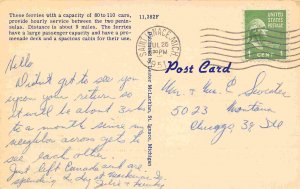 These ferries with a capacity of 80 to 110 cars,
provide hourly service between the two penin-
sulas. Distance is about 9 miles. The ferries
have a large passenger capacity and have a pro-
menade deck and a spacious cabin for their use.
11,382F
SAINT IGNACE, MICH.
JUL 26
PM
1951
1 CENT 1
Post Card
Hello
Didn't get to see you
upon your return so
it will be about 3 wks
to a month since my
neighbor across gets to
see each other.
Just left Canada and are
spending the day at Mackinac Is.
Mr. & Mrs. E. Swester
5023 Montana
Chicago 39 Ill
St. Ignace, Michigan